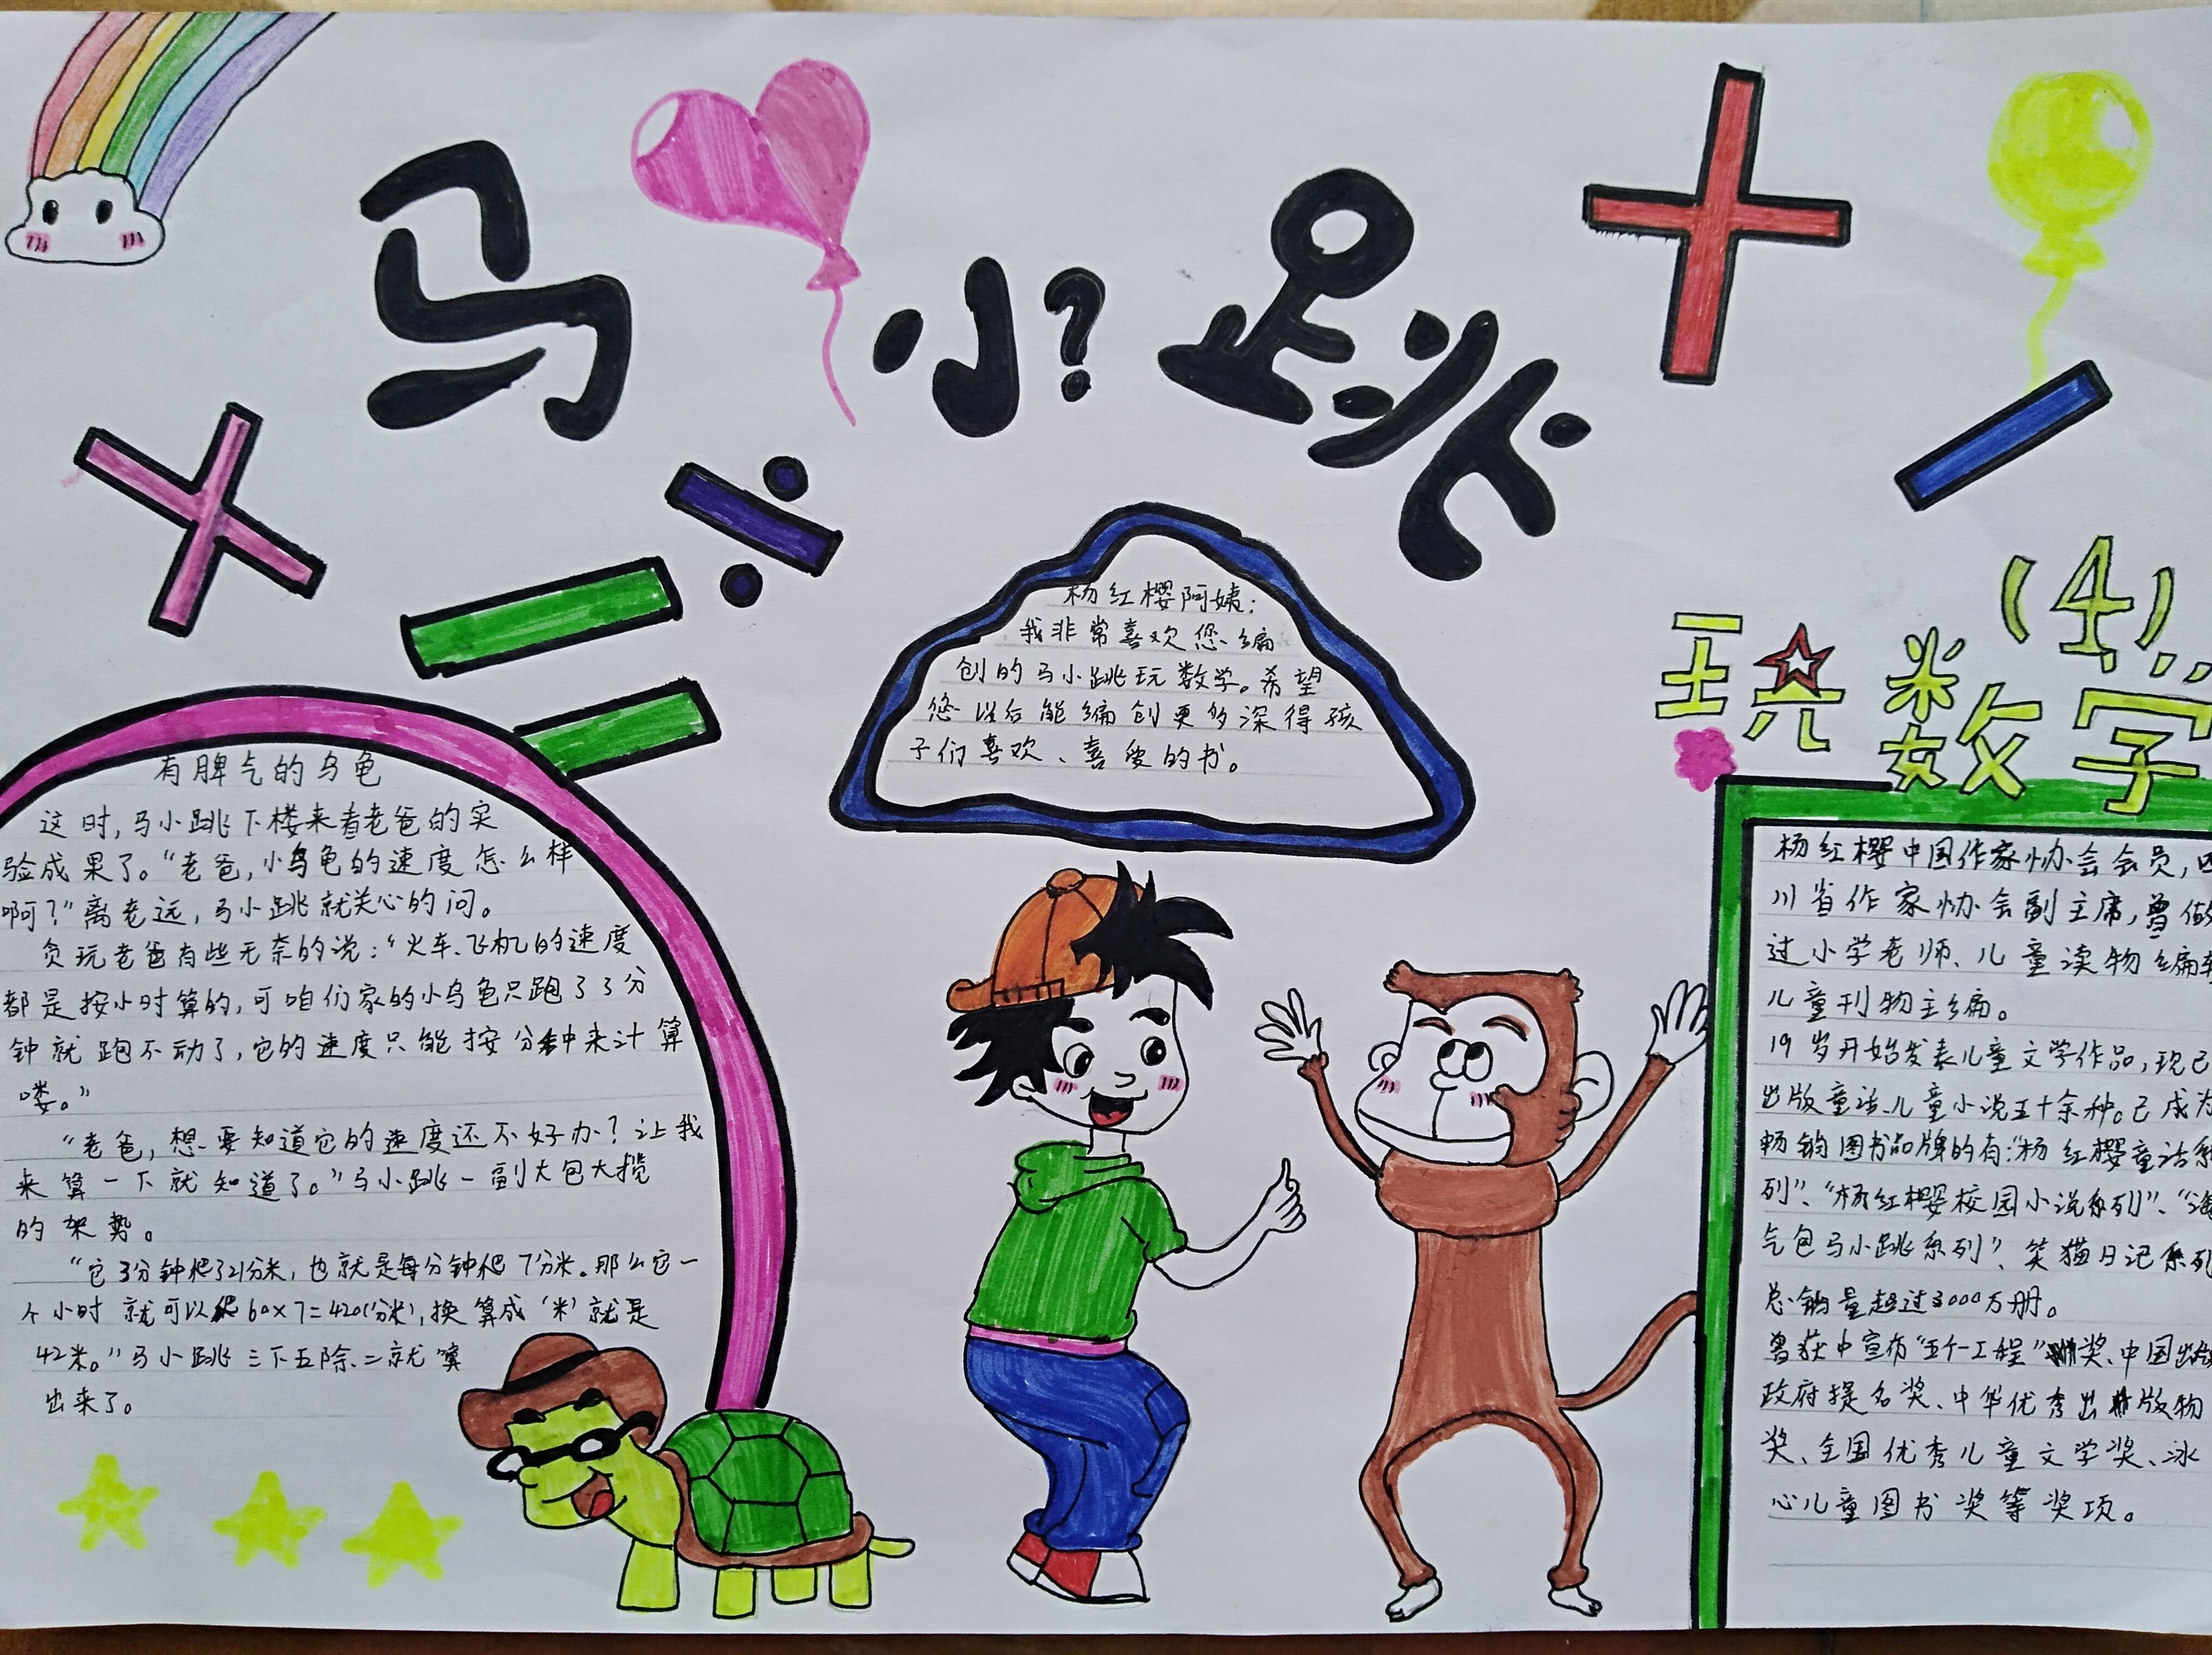 马小跳
玩数学
(4)
有脾气的乌龟
这时,马小跳下楼来看老爸的实
验成果了。“老爸,小乌龟的速度怎么样
啊?”离老远,马小跳就关心的问。
贪玩老爸有些无奈的说:“火车、飞机的速度
都是按小时算的,可咱们家的小乌龟只跑了3分
钟就跑不动了,它的速度只能按分钟来计算
喽。”
“老爸,想要知道它的速度还不好办?让我
来算一下就知道了。”马小跳一副大包大揽
的架势。
“它3分钟爬了21分米,也就是每分钟爬7分米。那么它一
个小时就可以爬60×7=420(分米),换算成‘米’就是
42米。”马小跳三下五除二就算
出来了。
杨红樱阿姨:
我非常喜欢您编
创的马小跳玩数学。希望
您以后能编创更多深得孩
子们喜欢、喜爱的书。
杨红樱中国作家协会会员,四
川省作家协会副主席,曾做
过小学老师、儿童读物编
儿童刊物主编。
19岁开始发表儿童文学作品,现已
出版童话、儿童小说五十余种。已成为
畅销图书品牌的有:“杨红樱童话系
列”、“杨红樱校园小说系列”、“淘
气包马小跳系列”、笑猫日记系列
总销量超过3000万册。
曾获中宣布“五个一工程”奖、中国出版
政府提名奖、中华优秀出版物
奖、全国优秀儿童文学奖、冰
心儿童图书奖等奖项。